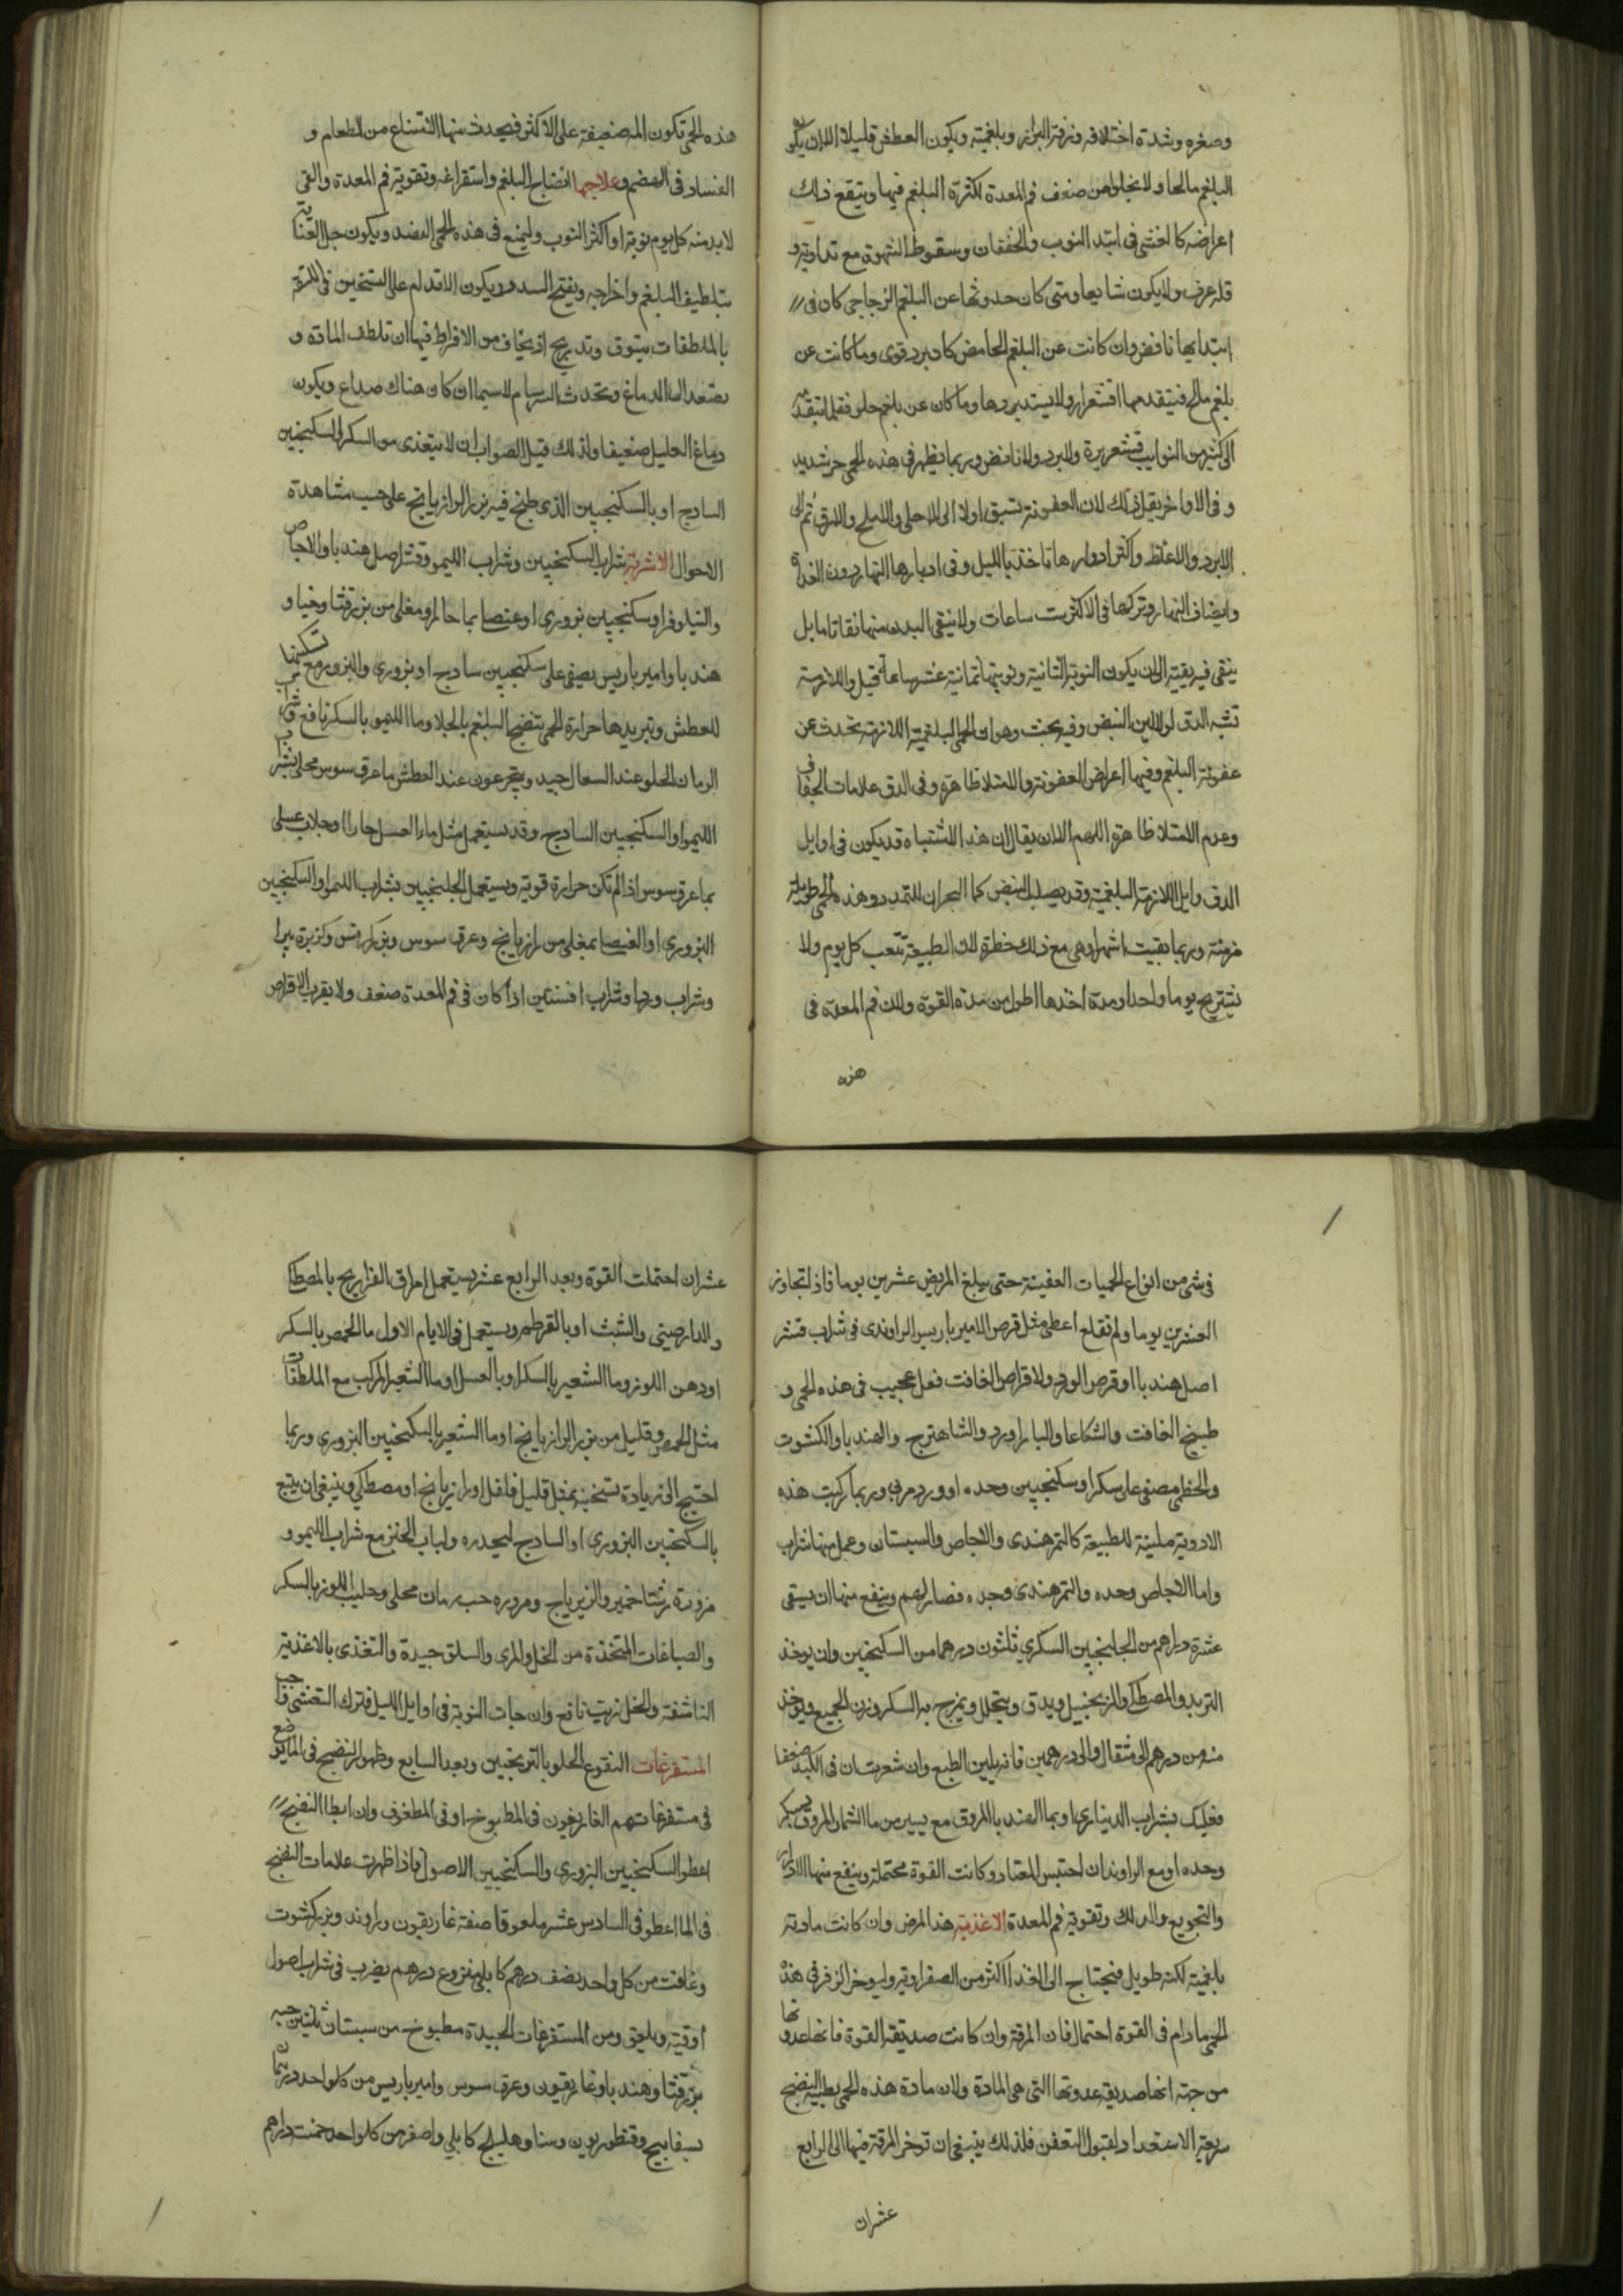 وصغره وشدة اختلافه ونزفة البراز وبلغميته ويكون العطش قليلا الا ان يكون
البلغم مالحا ولا يخلوا من ضعف فم المعدة لكثرة البلغم فيها ويتبع ذلك
اعراضه كالغشى فى ابتدا النوب والخفقان وسقوط الشهوة مع تداوته و
قلة عرف ولا يكون شايعا ومتى كان حدوثها عن البلغم الزجاجى كان فى
ابتدايها نافض وان كانت عن البلغم الحامض كان برد قوى وما كانت عن
بلغم مالح فيتقدمها اقشعرار ولا يستد بردها وما كان عن بلغم حلو فقبل
الى كثير من النوايب قشعريرة ولا برد ولا نافض وربما يظهر فى هذه الحمى حر شديد
وفى الاواخر يقل ذلك لان العفونة تسبق اولا الى الاحلى والاملح والارق ثم الى
الابرد والاغلظ واكثر ادوارها تاخذ بالليل وفى ادبارها النهار دون الغداة
وايضا فى النهار وتركها فى الاكثر ست ساعات ولا ينقى البدن منها نقا تاما بل
يبقى فيه بقية الى ان يكون النوبة الثانية ونوبتها ثمانية عشر ساعة قيل واللازمة
تشبه الدق لولا لين النبض وفيه بحث وهو ان الحمى البلغمية اللازمة تحدث عن
عفونة البلغم وفيها اعراض العفونة والامتلا ظاهرة وفى الدق علامات الجفاف
وعدم الامتلا ظاهرة اللهم الا ان يقال ان هذا الاشتباه قد يكون فى اوايل
الدق واوايل اللازمة البلغمية وقد يصلب النبض كما البحران للتمدد وهذه الحمى طويلة
مزمنة وربما بقيت اشهرا وهى مع ذلك خطرة لان الطبيعة تتعب كل يوم ولا
تستريح يوما واحدا ومدة اخذها اطول من مدة القوة ولان فم المعدة فى
هذه
هذه الحمى تكون المه ضعيفة على الاكثر فيحدث منها الامتناع من الطعام و
الفساد فى الهضم وعلاجها انضاج البلغم واستفراغه وتقوية فم المعدة والقى
لا بد منه كل يوم نوبة او اكثر النوب وليمنع فى هذه الحمى الفصد ويكون جل العناية
بتلطيف البلغم واخراجه وبفتح السدد ويكون الاقدام على التسخين فى المرة
بالملطفات بتوق وتدريج اذ يخاف من الافراط فيها ان تلطف المادة و
تصعد الى الدماغ وتحدث السرسام لا سيما ان كان هناك صداع ويكون
دماغ العليل ضعيفا ولذلك قيل الصواب ان لا يتغذى من السكر السكنجبين
السادج او بالسكنجبين الذى طبخ فيه بزر الرازيانج على حسب مشاهدة
الاحوال الاشربة شراب السكنجبين وشراب الليمو وقشر اصل هندبا والاجاص
والنيلوفر او سكنجبين بزورى او عنصل بما حار او مغلى من بزر قثا وخيار و
هندبا وامير باريس يصفى على سكنجبين سادج او بزورى والبزور مع تسكينها
للعطش وتبريدها حرارة الحمى تنضج البلغم بالجلا وما الليمو بالسكر نافع وشراب
الرمان الحلو عند السعال جيد ويتجرعون عند العطش ما عرق سوس محلى بشراب
الليمو او السكنجبين السادج وقد يستعمل مثل ماء العسل حارا او جلاب عسلى
بما عرق سوس اذا لم تكن حرارة قوية ويستعمل الجلنجبين بشراب الليمو او السكنجبين
البزورى او العنصل بمغلى من رازيانج وعرق سوس وبزر كرفس وكزبرة بير
وشراب ورد وشراب افسنتين اذا كان فى فم المعدة ضعف ولا يقرب الاقراص
فى شى من انواع الحميات العفينة حتى يبلغ المريض عشرين يوما فاذا تجاوز
العشرين يوما ولم تقلع اعطى مثل قرص الامير باريس الراوندى فى شراب قشر
اصل هندبا او قرص الورد ولا قراص الغافت فعل عجيب فى هذه الحمى و
طبيخ الغافت والشكاعا والباداورد والشاهترج والهندبا والكشوت
والخطمى مصفى على سكر او سكنجبين وحده او ورد مربى وربما ركبت هذه
الادوية ملينة للطبيعة كالتمر هندى والاجاص والسبستان وعمل منها شراب
واما الاجاص وحده والتمر هندى وحده فضار لهم وينفع منها ان يسقى
عشرة دراهم من الجلنجبين السكرى ثلثون درهما من السكنجبين وان يوخذ
التربد والمصطكى والزنجبيل ويدق وينخل ويمزج به السكر وزن الجميع ويوخذ
منه من درهم الى مثقال والى درهمين فانه يلين الطبع وان شعرت ان فى الكبد ضعفا
فعليك بشراب الدينارى او بما الهندبا المروق مع يسير من ما الشمار المروق بسكر
وحده او مع الراوند ان احتبس المعتاد وكانت القوة محتملة وينفع منها الادرار
والتجويع والدلك وتقوية فم المعدة الاغذية هذا المرض وان كانت مادته
بلغمية لكنه طويل فيحتاج الى الغذا اكثر من الصفراوية وليوخر الزفر فى هذه
الحمى ما دام فى القوة احتمال فان المرقة وان كانت صديقة القوة فانها عدوتها
من جهة انها صديقة عدوتها التى هى المادة ولان مادة هذه الحمى بطيية النضج
سريعة الاستعداد لقبول التعفن فلذلك ينبغى ان توخر المرقة فيها الى الرابع
عشر ان
عشر ان احتملت القوة وبعد الرابع عشر يستعمل امراق الفراريج بالمصطكا
والدارصينى والشبث او بالقرطم ويستعمل فى الايام الاول ما الحمص بالسكر
او دهن اللوز وما الشعير بالسكر او بالعسل او ما الشعير المركب مع الملطفات
مثل الحمص وقليل من بزر الرازيانج او ما الشعير بالسكنجبين البزورى وربما
احتيج الى زيادة تسخينه بمثل قليل فلفل او رازيانج او مصطكى وينبغى ان يتبع
بالسكنجبين البزورى او السادج ليحدره ولباب الخبز مع شراب الليمو و
مزورة رشتا خمير والزيرباج ومزوره حب رمان محلى وحليب اللوز بالسكر
والصباغات المتخذة من الخل والمرى والسلق جيدة والتغذى بالاغذية
الناشفة والخل زيت نافع وان جات النوبة فى اوايل الليل فترك التعشى واجب
المستفرغات النقوع الحلو بالترنجبين وبعد السابع وظهور النضج فى الما يوضع
فى مستفرغاتهم الغاريقون فى المطبوخ او فى المطغرف وان ابطا النضج
اعطوا السكنجبين البزورى والسكنجبين الاصولى فاذا ظهرت علامات النضج
فى الما اعطوا فى السادس عشر ملعوقا صفته غاريقون وراوند وبزر كشوت
وغافت من كل واحد نصف درهم كابلى منزوع درهم يضرب فى شراب اصول
اوقية ويلعق ومن المستفرغات الجيدة مطبوخ من سبستان ثلثين حبه
بزر قثا وهندبا وغاريقون وعرق سوس وامير باريس من كل واحد
بسفايج وقنطوريون وسنا وهليلج كابلى واصفر من كل واحد خمست دراهم